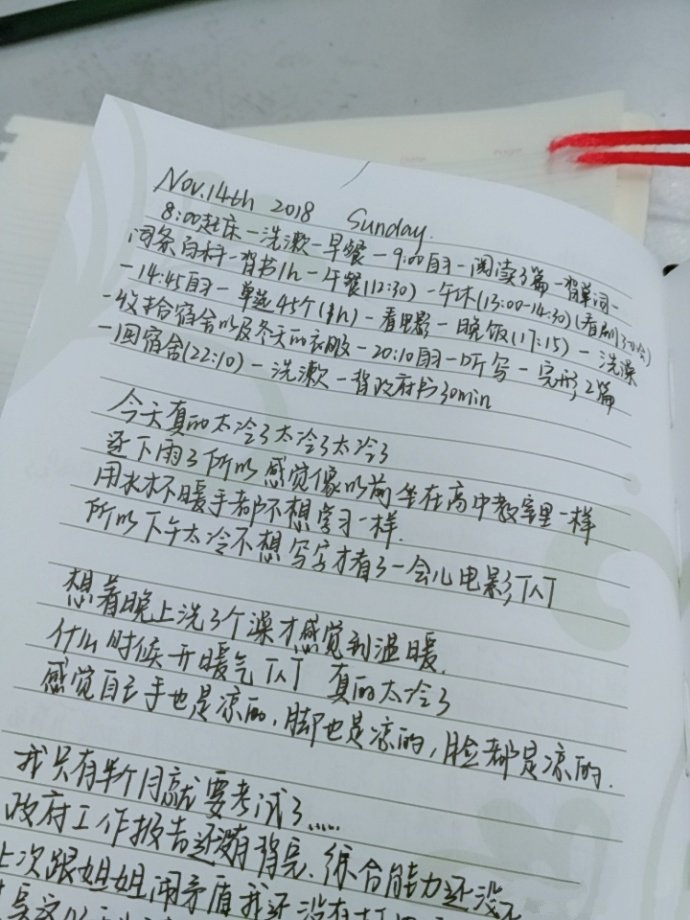 Nov.14th 2018 Sunday.
8:00起床-洗漱-早餐-9:00自习-阅读3篇-背单词-
词条百科-背书1h-午餐(12:30)-午休(13:00-14:30)(看剧
-14:45自习-单选45个(1h)-看电影-晚饭(17:15)-洗澡
-收拾宿舍以及冬天的衣服-20:10自习-听写-完形2篇
-回宿舍(22:10)-洗漱-背政府书30min
今天真的太冷了太冷了太冷了
还下雨了所以感觉像以前坐在高中教室里一样
用水杯暖手都不想学习一样.
所以下午太冷不想写字才看了一会儿电影TAT
想着晚上洗了个澡才感觉到温暖.
什么时候开暖气TAT 真的太冷了
感觉自己手也是凉的,脚也是凉的,脸都是凉的.
我只有半个月就要考试了.....
政府工作报告还没有背完.综合能力还没
上次跟姐姐闹矛盾我还没有